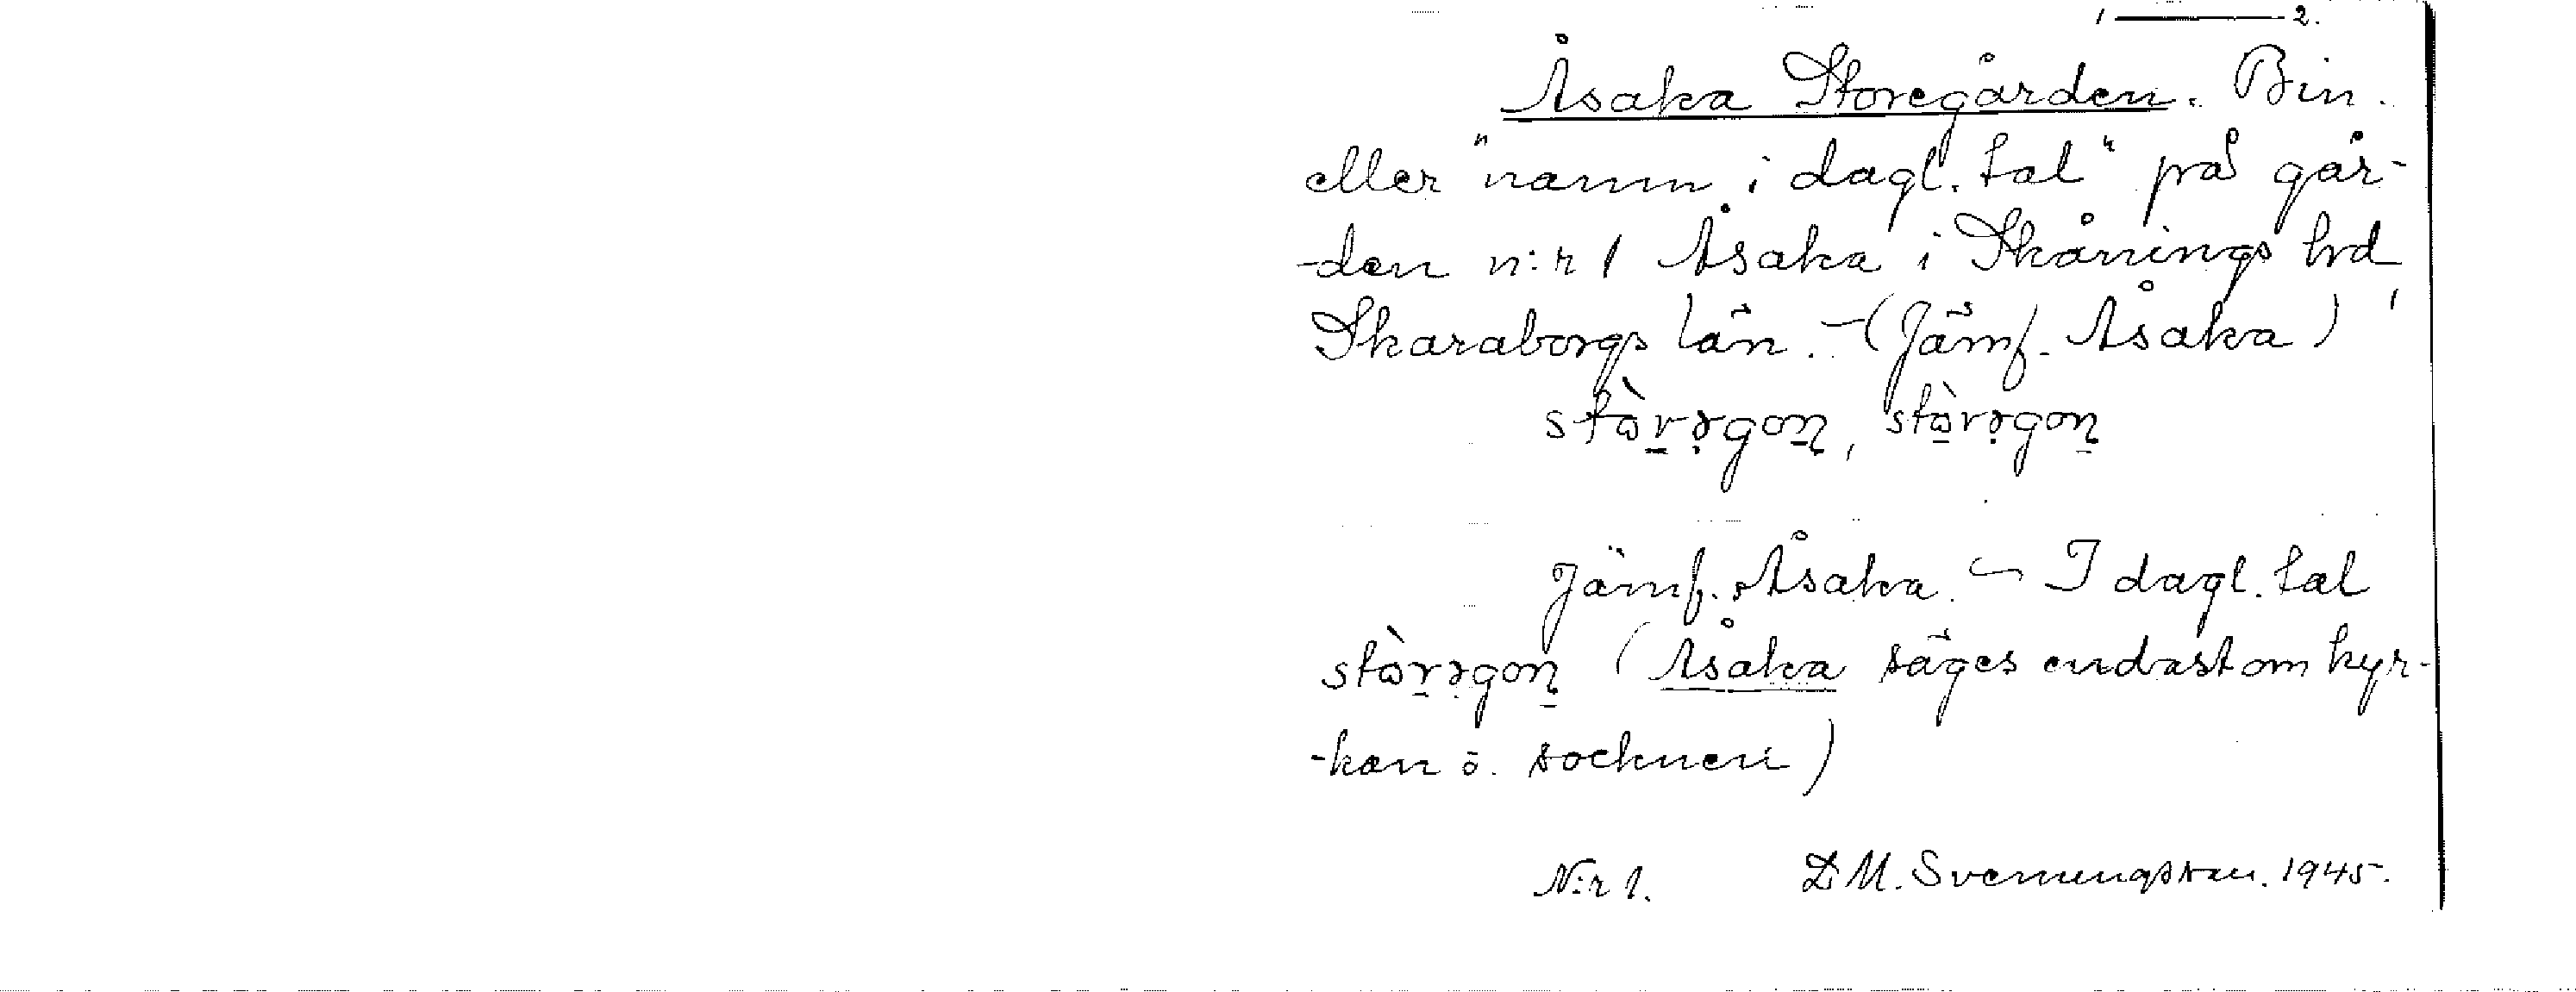 1 — 2.
Åsaka Storegården. Bin.
eller "namn i dagl. tal" på går-
-den n:r 1 Åsaka i Skånings hd,
Skaraborgs län. – (Jämf. Åsaka)
Jämf. Åsaka. – I dagl. tal
(Åsaka säges endast om kyr-
-kan o. socknen)
N:r 1. D.M. Svenungsson. 1945.